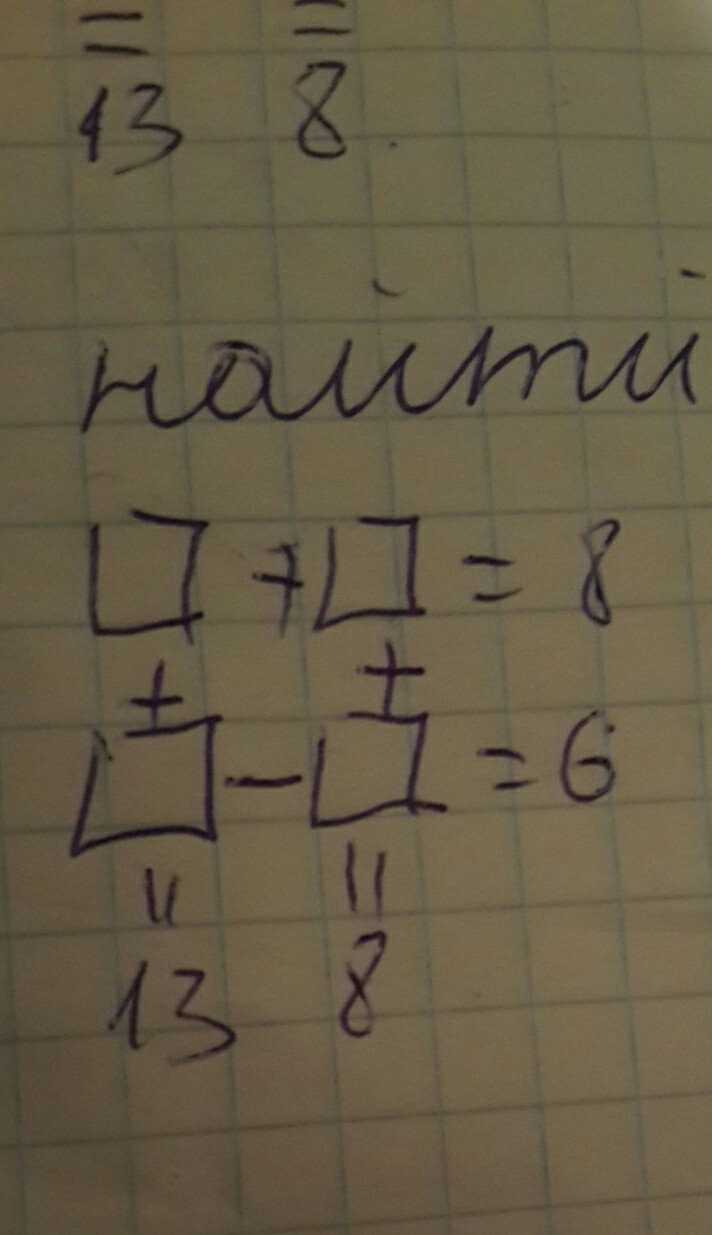 = =
13 8.
найти
□ + □ = 8
+ +
□ - □ = 6
= =
13 8